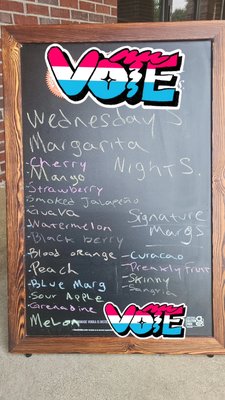 VOTE
Wednesdays
Margarita
Nights.
-Cherry
-Mango
-Strawberry
Smoked Jalapeño
Guava
-Watermelon
-Black berry
-Blood orange
-Peach
-Blue Marg
-Sour Apple
-Grenadine
Melon
Signature
Margs
-Curacao
-Skinny
-Sangria
VOTE